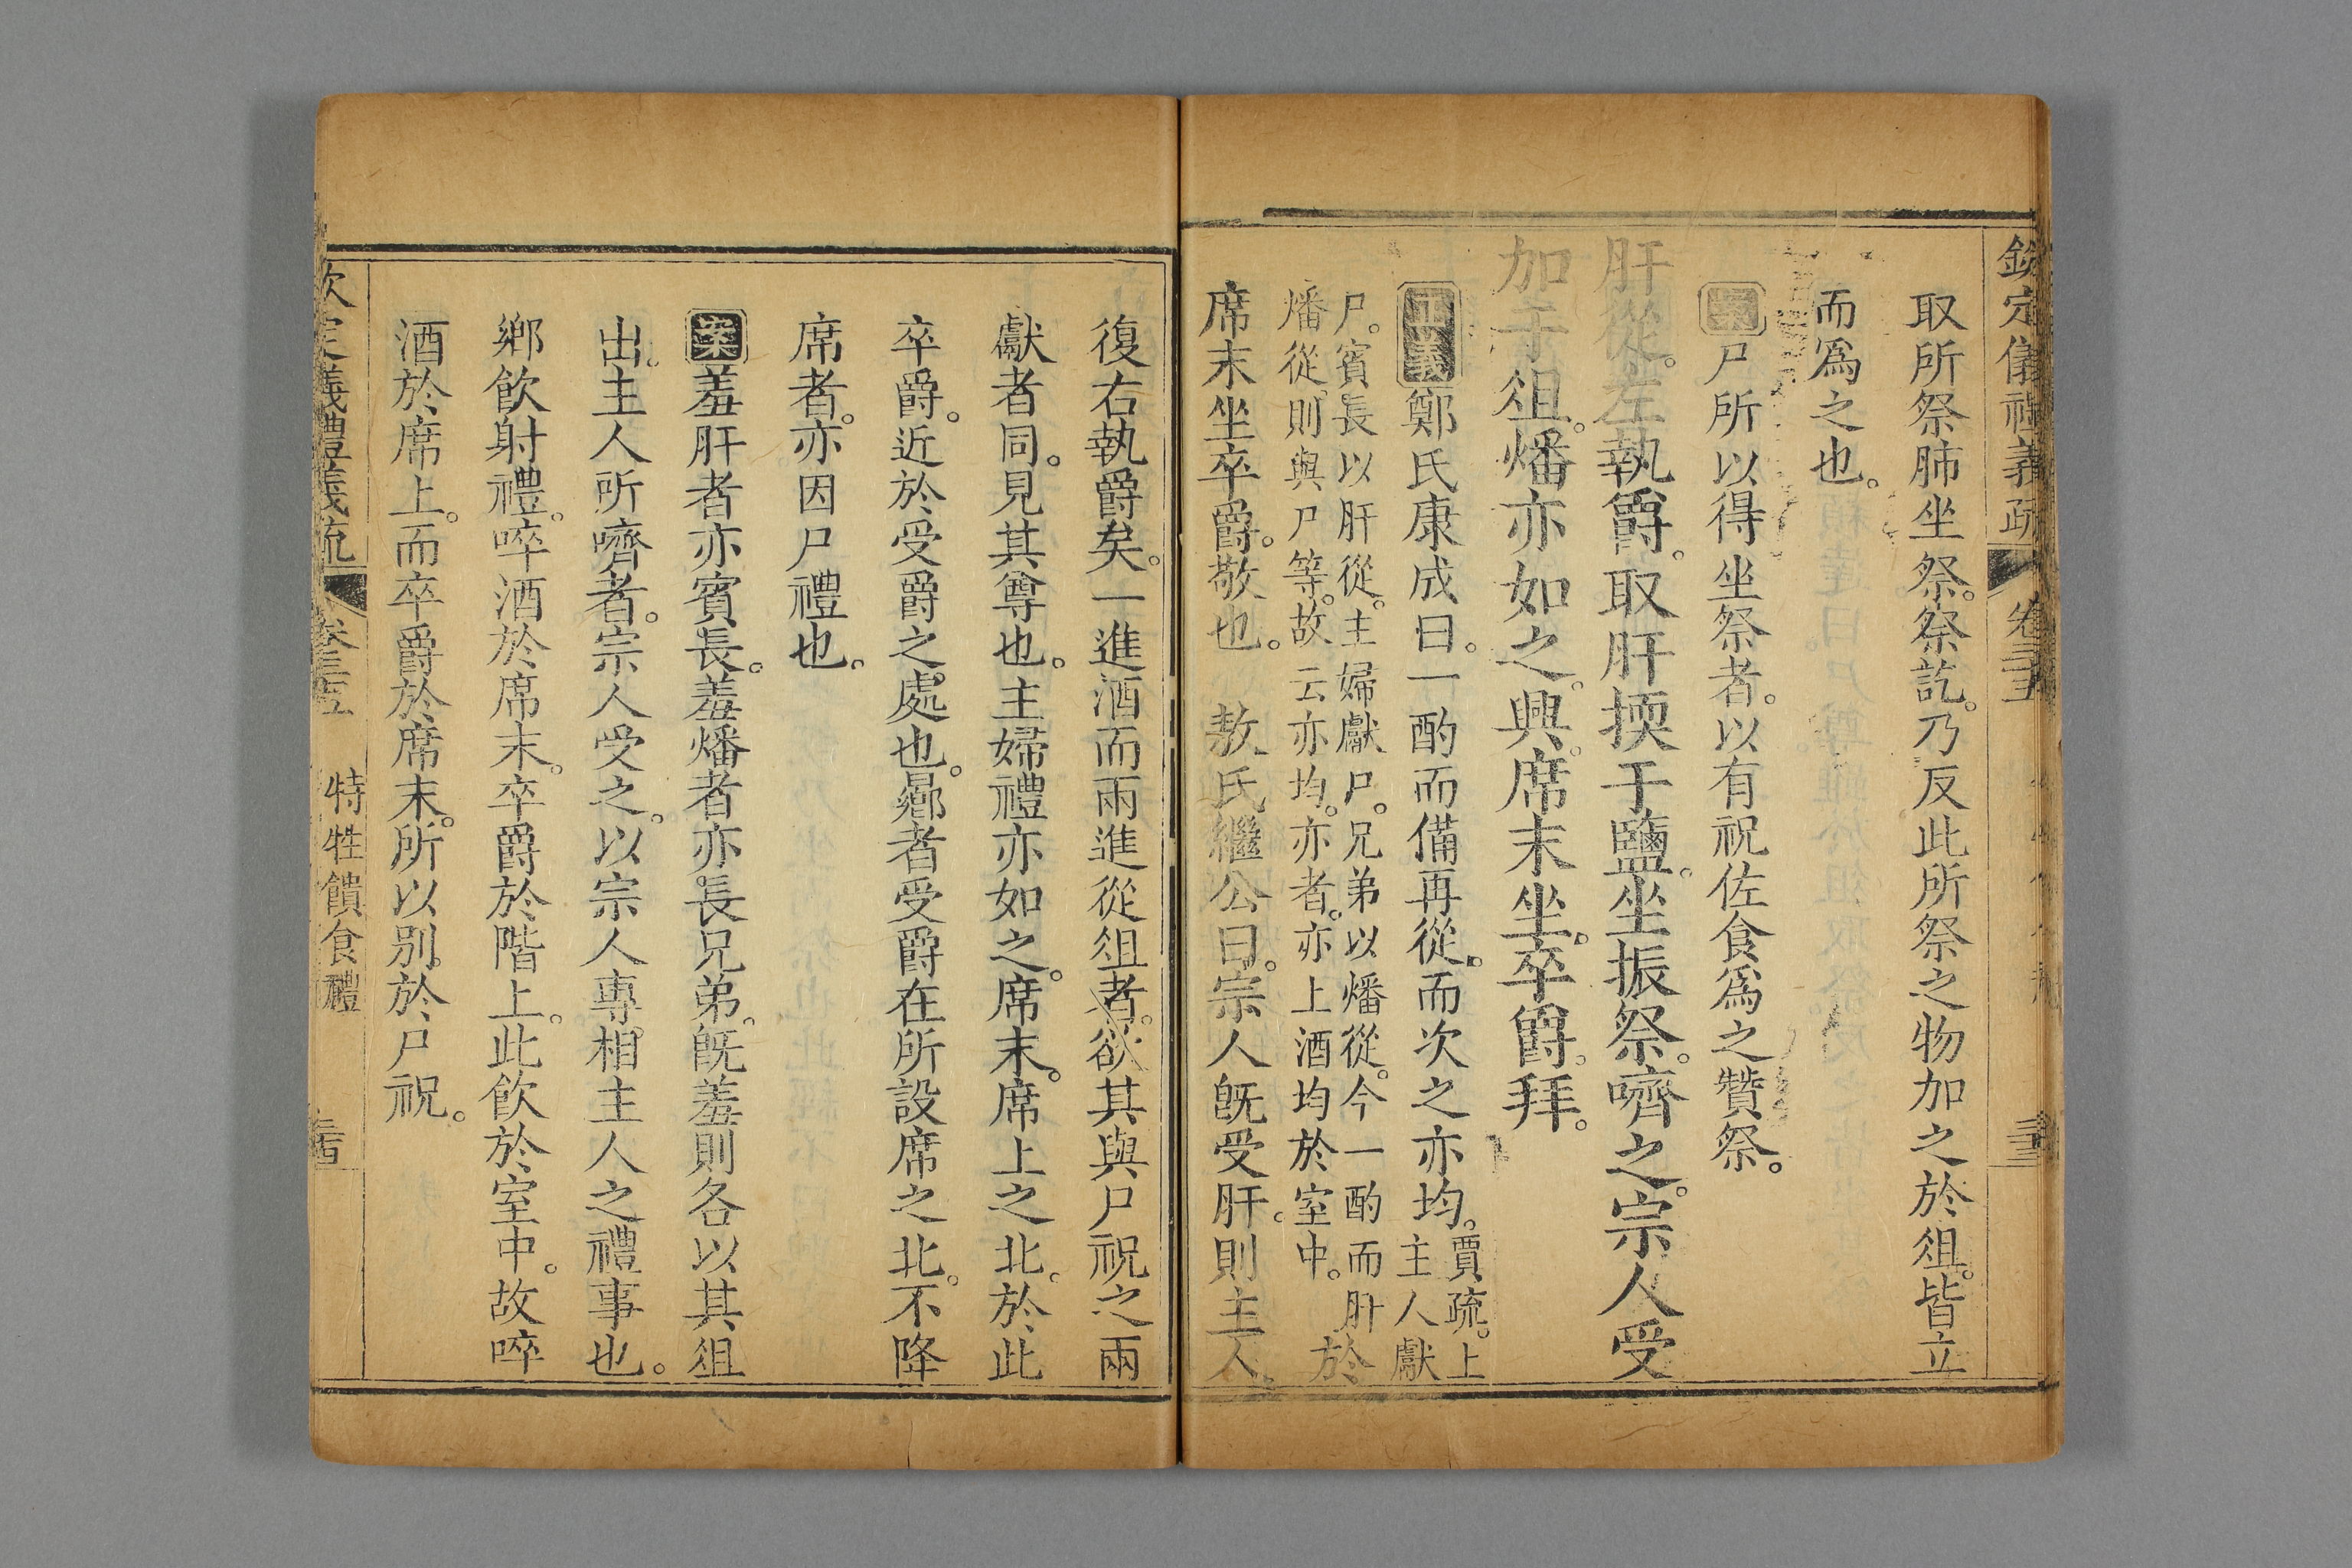 欽定儀禮義疏 卷三十五
取所祭肺坐祭。祭訖。乃反此所祭之物加之於俎。皆立
而爲之也。
案尸所以得坐祭者。以有祝佐食爲之贊祭。
肝從。左執爵。取肝擩于鹽。坐振祭。嚌之。宗人受
加于俎。燔亦如之。興。席末坐。卒爵。拜。
正義鄭氏康成曰。一酌而備再從。而次之亦均。賈疏。上
主人獻
尸。賓長以肝從。主婦獻尸。兄弟以燔從。今一酌而肝
燔從。則與尸等。故云亦均。亦者。亦上酒均於室中。於
席末坐卒爵。敬也。 敖氏繼公曰。宗人旣受肝。則主人
復右執爵矣。一進酒而兩進從俎者。欲其與尸祝之兩
獻者同。見其尊也。主婦禮亦如之。席末。席上之北。於此
卒爵。近於受爵之處也。曏者受爵在所設席之北。不降
席者。亦因尸禮也。
案羞肝者亦賓長。羞燔者亦長兄弟。旣羞則各以其俎
出。主人所嚌者。宗人受之。以宗人專相主人之禮事也。
鄉飮射禮。啐酒於席末。卒爵於階上。此飮於室中。故啐
酒於席上。而卒爵於席末。所以别於尸祝。
欽定儀禮義疏 卷三十五 特牲饋食禮